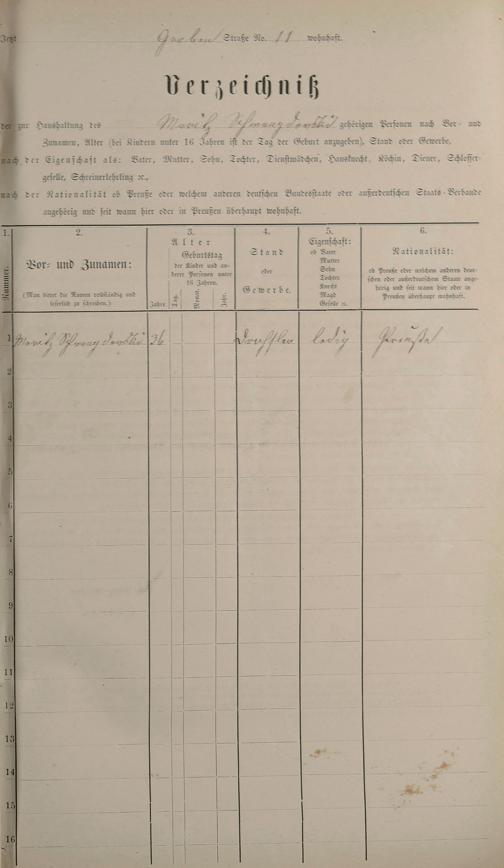 Jetzt Graben Straße No. 11 wohnhaft.
Verzeichniß
der zur Haushaltung des Moritz gehörigen Personen nach Vor- und
Zunamen, Alter (bei Kindern unter 16 Jahren ist der Tag der Geburt anzugeben), Stand oder Gewerbe,
nach der Eigenschaft als: Vater, Mutter, Sohn, Tochter, Dienstmädchen, Hausknecht, Köchin, Diener, Schlosser-
geselle, Schreinerlehrling ꝛc.,
nach der Nationalität ob Preuße oder welchem anderen deutschen Bundesstaate oder außerdeutschen Staats-Verbande
angehörig und seit wann hier oder in Preußen überhaupt wohnhaft.
1.
Nummer.
2.
Vor- und Zunamen:
(Man bittet die Namen vollständig und
leserlich zu schreiben.)
3.
Alter
Geburtstag
der Kinder und an-
derer Personen unter
16 Jahren.
Jahre
Tag.
Monat.
Jahr.
4.
Stand
oder
Gewerbe.
5.
Eigenschaft:
ob Vater
Mutter
Sohn
Tochter
Knecht
Magd
Geselle ꝛc.
6.
Nationalität:
ob Preuße oder welchem anderen deut-
schen oder außerdeutschen Staate ange-
hörig und seit wann hier oder in
Preußen überhaupt wohnhaft.
1 Moritz 36 Drechsler ledig Preuße
2
3
4
5
6
7
8
9
10
11
12
13
14
15
16